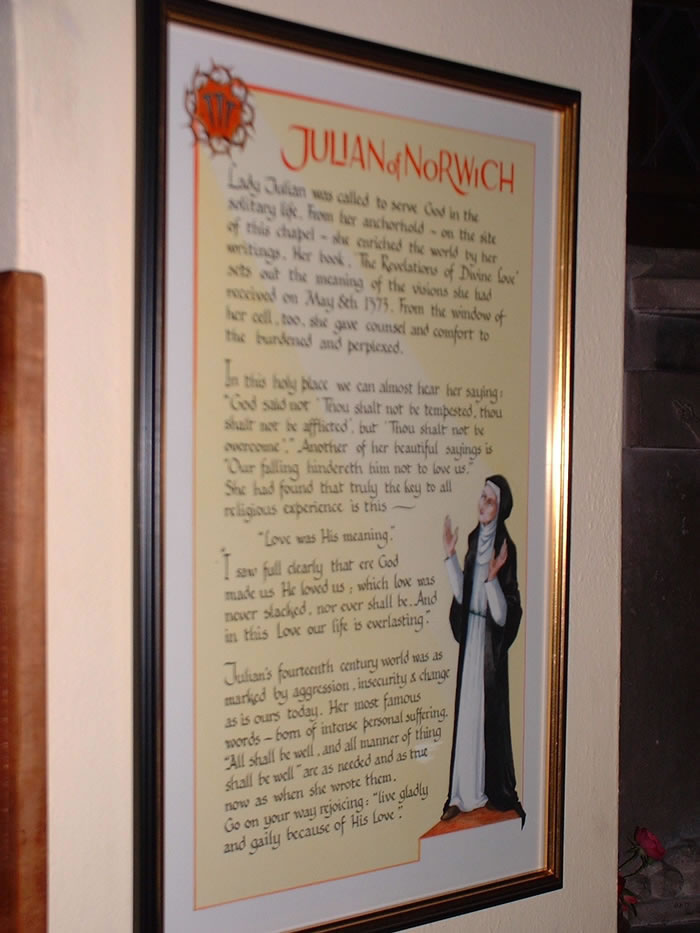 JULIAN of NORWICH
Lady Julian was called to serve God in the
solitary life. From her anchorhold - on the site
of this chapel - she enriched the world by her
writings. Her book, 'The Revelations of Divine Love'
sets out the meaning of the visions she had
received on May 8th 1373. From the window of
her cell, too, she gave counsel and comfort to
the burdened and perplexed.
In this holy place we can almost hear her saying:
"God said not 'Thou shalt not be tempested, thou
shalt not be afflicted', but 'Thou shalt not be
overcome'." Another of her beautiful sayings is
"Our falling hindereth him not to love us."
She had found that truly the key to all
religious experience is this —
"Love was His meaning."
"I saw full clearly that ere God
made us He loved us; which love was
never slacked, nor ever shall be. And
in this Love our life is everlasting."
Julian's fourteenth century world was as
marked by aggression, insecurity & change
as is ours today. Her most famous
words - born of intense personal suffering,
"All shall be well, and all manner of thing
shall be well" are as needed and as true
now as when she wrote them.
Go on your way rejoicing: "live gladly
and gaily because of His Love".